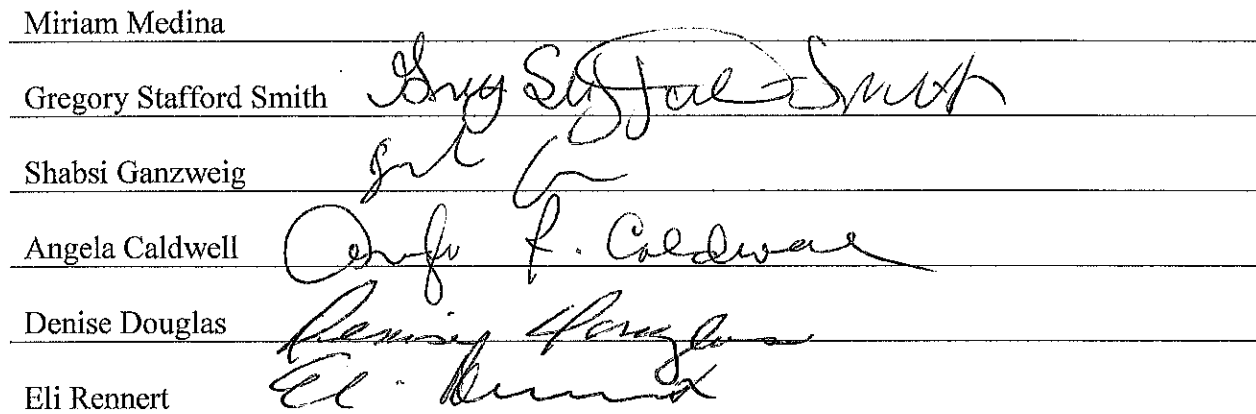 Miriam Medina
Gregory Stafford Smith Greg Stafford Smith
Shabsi Ganzweig
Angela Caldwell Angela R. Caldwell
Denise Douglas Denise Douglas
Eli Rennert Eli Rennert